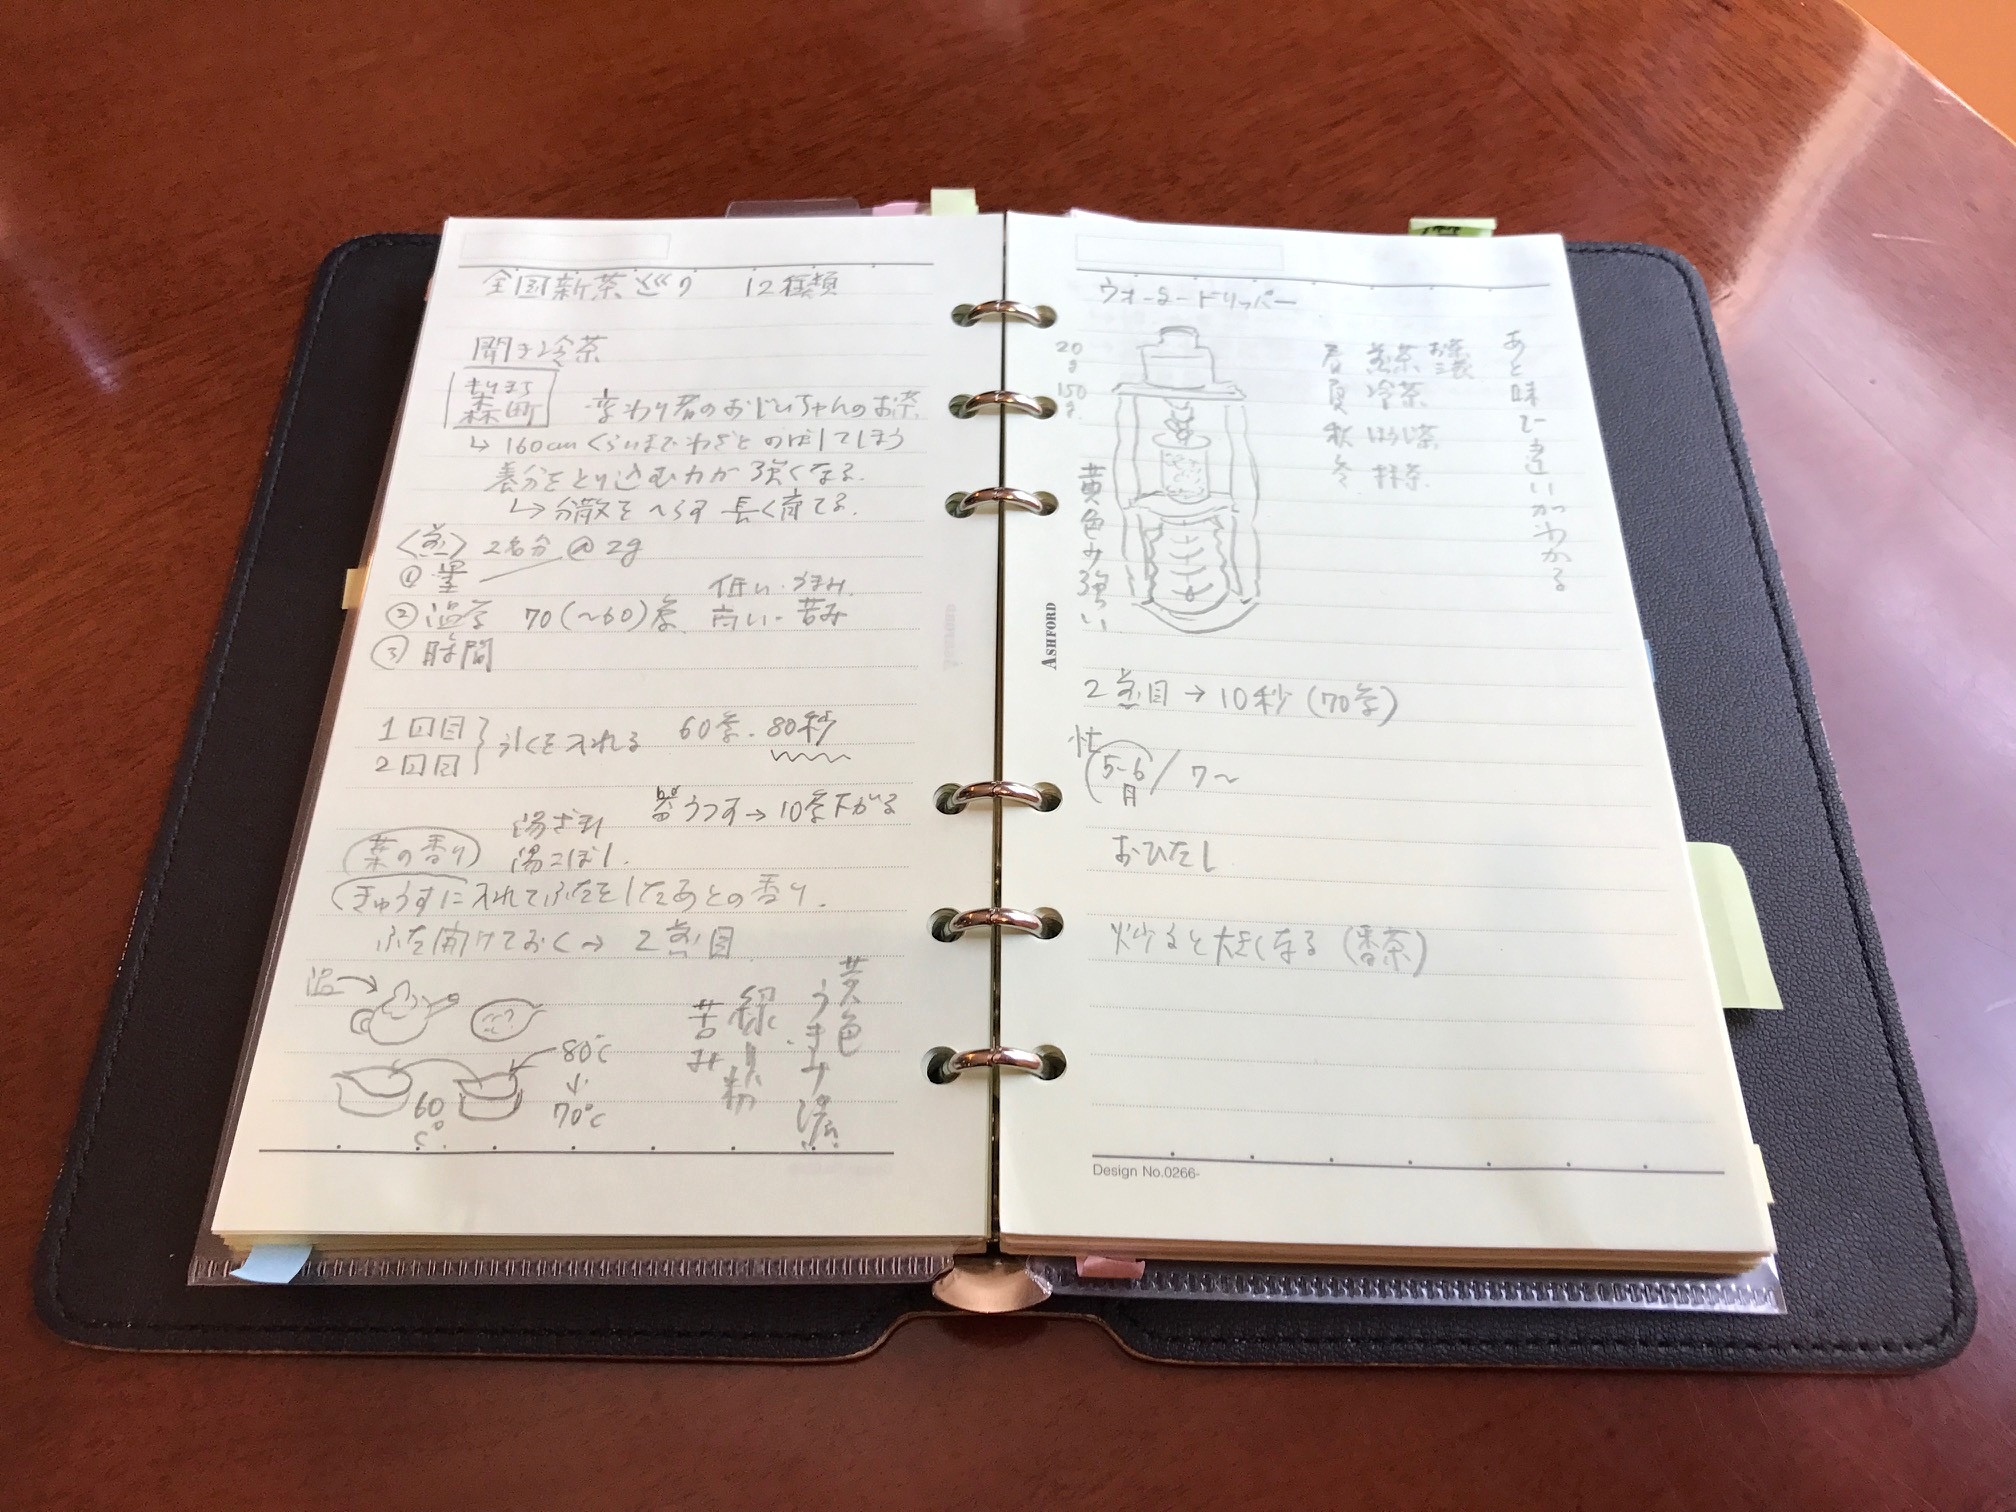 全国新茶巡り 12種類
聞き冷茶
もりまち
森町
変わり者のおじいちゃんのお茶
↳ 160cmくらいまでわざとのばしてしまう
養分をとり込む力が強くなる.
↳ 分散をへらす 長く育てる.
〈煎〉 2名分 @2g
① 量
低い・うまみ.
② 温度 70(〜60)度. 高い-苦み
③ 時間
1回目
2回目
60度. 80秒
うつす→10度下がる
湯ざまし
葉の香り 湯こぼし.
きゅうすに入れてふたをしたあとの香り.
ふた開けておく→ 2煎目
湯
80℃
↓
70℃
60
C°
黄色
うまみ濃い
緑 粉
苦み
ウォータードリッパー
20g
150g
春 煎茶
夏 冷茶
秋 ほうじ茶
冬 抹茶
あと味で違いがわかる
黄色み強い
ASHFORD
2煎目→10秒(70度)
忙
(5-6月)/7〜
おひたし
炒ると大きくなる(番茶)
Design No.0266-